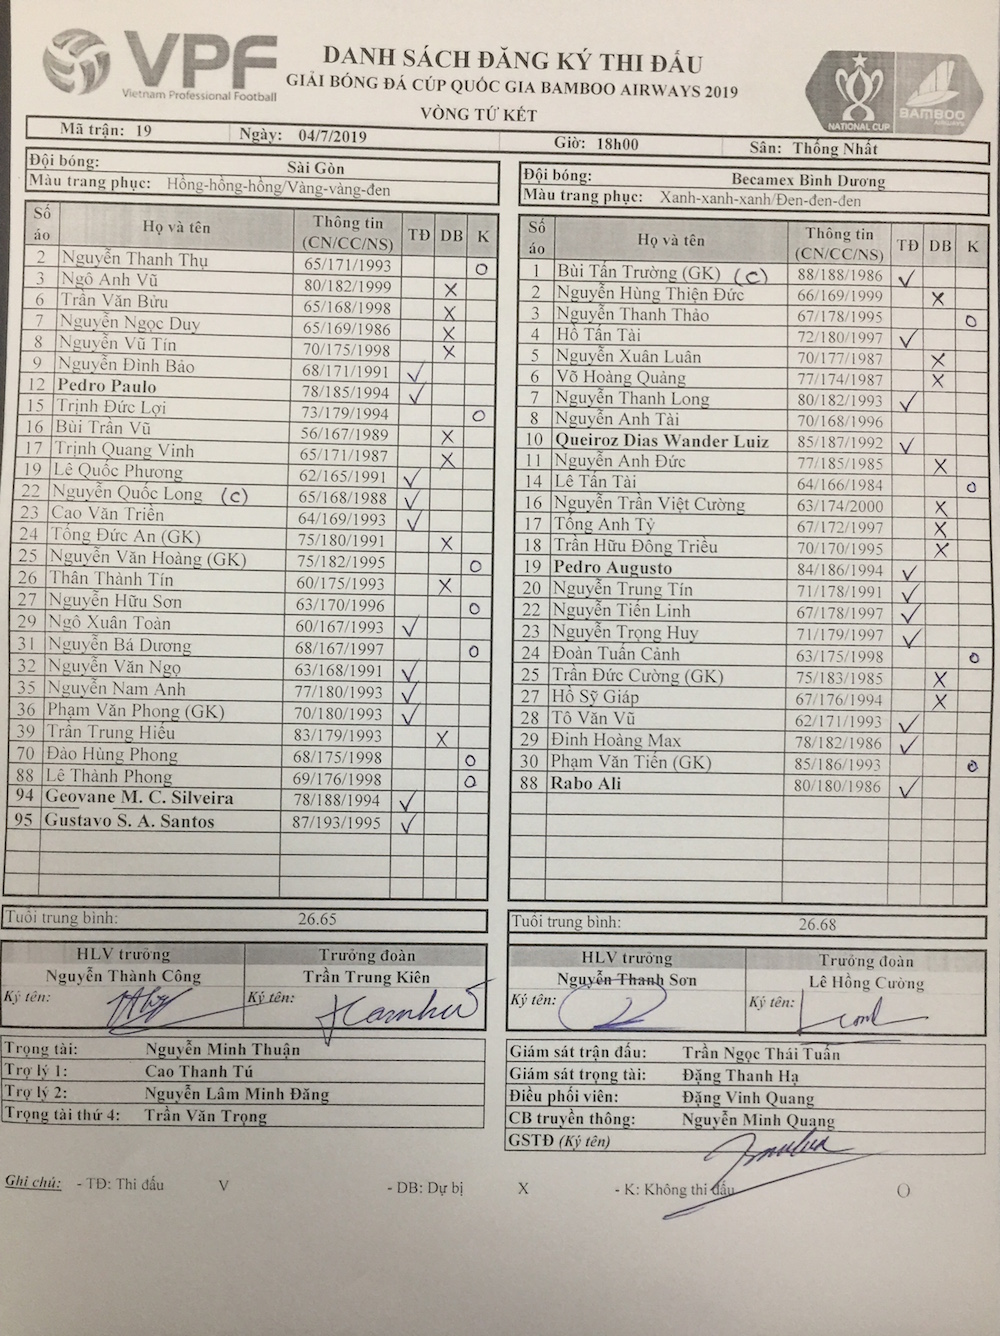 VPF
Vietnam Professional Football
DANH SÁCH ĐĂNG KÝ THI ĐẤU
GIẢI BÓNG ĐÁ CÚP QUỐC GIA BAMBOO AIRWAYS 2019
VÒNG TỨ KẾT
NATIONAL CUP
BAMBOO
AIRWAYS
Mã trận: 19 Ngày: 04/7/2019 Giờ: 18h00 Sân: Thống Nhất
Đội bóng: Sài Gòn
Màu trang phục: Hồng-hồng-hồng/Vàng-vàng-đen
Số áo Họ và tên Thông tin (CN/CC/NS) TĐ DB K
2 Nguyễn Thanh Thụ 65/171/1993 O
3 Ngô Anh Vũ 80/182/1999 X
6 Trần Văn Bửu 65/168/1998 X
7 Nguyễn Ngọc Duy 65/169/1986 X
8 Nguyễn Vũ Tín 70/175/1998 X
9 Nguyễn Đình Bảo 68/171/1991 ✓
12 Pedro Paulo 78/185/1994 ✓
15 Trịnh Đức Lợi 73/179/1994 O
16 Bùi Trần Vũ 56/167/1989 X
17 Trịnh Quang Vinh 65/171/1987 X
19 Lê Quốc Phương 62/165/1991 ✓
22 Nguyễn Quốc Long (C) 65/168/1988 ✓
23 Cao Văn Triền 64/169/1993 ✓
24 Tống Đức An (GK) 75/180/1991 X
25 Nguyễn Văn Hoàng (GK) 75/182/1995 O
26 Thân Thành Tín 60/175/1993 X
27 Nguyễn Hữu Sơn 63/170/1996 O
29 Ngô Xuân Toàn 60/167/1993 ✓
31 Nguyễn Bá Dương 68/167/1997 O
32 Nguyễn Văn Ngọ 63/168/1991 ✓
35 Nguyễn Nam Anh 77/180/1993 ✓
36 Phạm Văn Phong (GK) 70/180/1993 ✓
39 Trần Trung Hiếu 83/179/1993 X
70 Đào Hùng Phong 68/175/1998 O
88 Lê Thành Phong 69/176/1998 O
94 Geovane M. C. Silveira 78/188/1994 ✓
95 Gustavo S. A. Santos 87/193/1995 ✓
Tuổi trung bình: 26.65
HLV trưởng Trưởng đoàn
Nguyễn Thành Công Trần Trung Kiên
Ký tên: Ký tên:
Trọng tài: Nguyễn Minh Thuận
Trợ lý 1: Cao Thanh Tú
Trợ lý 2: Nguyễn Lâm Minh Đăng
Trọng tài thứ 4: Trần Văn Trọng
Đội bóng: Becamex Bình Dương
Màu trang phục: Xanh-xanh-xanh/Đen-đen-đen
Số áo Họ và tên Thông tin (CN/CC/NS) TĐ DB K
1 Bùi Tấn Trường (GK) (C) 88/188/1986 ✓
2 Nguyễn Hùng Thiện Đức 66/169/1999 X
3 Nguyễn Thanh Thảo 67/178/1995 O
4 Hồ Tấn Tài 72/180/1997 ✓
5 Nguyễn Xuân Luân 70/177/1987 X
6 Võ Hoàng Quảng 77/174/1987 X
7 Nguyễn Thanh Long 80/182/1993 ✓
8 Nguyễn Anh Tài 70/168/1996
10 Queiroz Dias Wander Luiz 85/187/1992 ✓
11 Nguyễn Anh Đức 77/185/1985 X
14 Lê Tấn Tài 64/166/1984 O
16 Nguyễn Trần Việt Cường 63/174/2000 X
17 Tống Anh Tỷ 67/172/1997 X
18 Trần Hữu Đông Triều 70/170/1995 X
19 Pedro Augusto 84/186/1994 ✓
20 Nguyễn Trung Tín 71/178/1991 ✓
22 Nguyễn Tiến Linh 67/178/1997 ✓
23 Nguyễn Trọng Huy 71/179/1997 ✓
24 Đoàn Tuấn Cảnh 63/175/1998 O
25 Trần Đức Cường (GK) 75/183/1985 X
27 Hồ Sỹ Giáp 67/176/1994 X
28 Tô Văn Vũ 62/171/1993 ✓
29 Đinh Hoàng Max 78/182/1986 ✓
30 Phạm Văn Tiến (GK) 85/186/1993 O
88 Rabo Ali 80/180/1986 ✓
Tuổi trung bình: 26.68
HLV trưởng Trưởng đoàn
Nguyễn Thanh Sơn Lê Hồng Cường
Ký tên: Ký tên:
Giám sát trận đấu: Trần Ngọc Thái Tuấn
Giám sát trọng tài: Đặng Thanh Hạ
Điều phối viên: Đặng Vinh Quang
CB truyền thông: Nguyễn Minh Quang
GSTĐ (Ký tên)
Ghi chú: - TĐ: Thi đấu V - DB: Dự bị X - K: Không thi đấu O